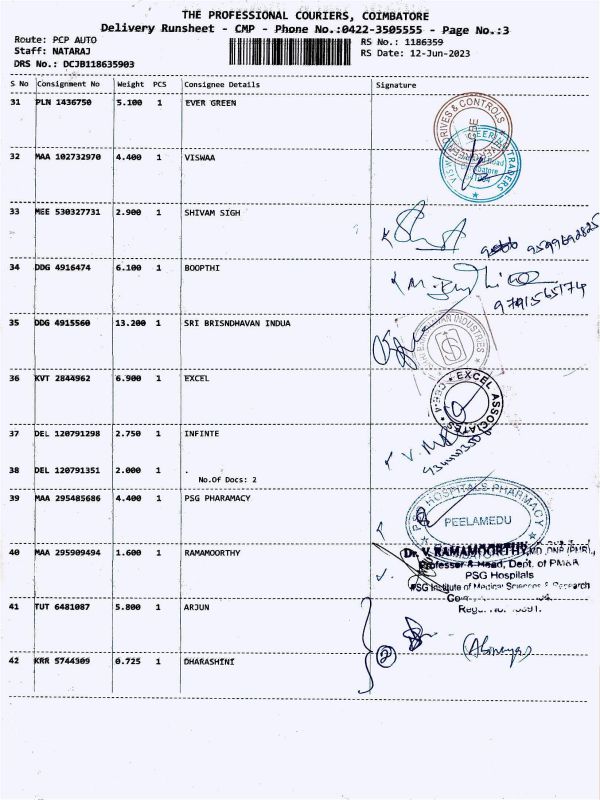 THE PROFESSIONAL COURIERS, COIMBATORE
Delivery Runsheet - CMP - Phone No.:0422-3505555 - Page No.:3
Route: PCP AUTO
RS No.: 1186359
Staff: NATARAJ
RS Date: 12-Jun-2023
DRS No.: DCJB118635903
S No Consignment No Weight PCS Consignee Details Signature
31 PLN 1436750 5.100 1 EVER GREEN
DRIVES & CONTROLS
32 MAA 102732970 4.400 1 VISWAA
TRADERS
33 MEE 530327731 2.900 1 SHIVAM SIGH
34 DDG 4916474 6.100 1 BOOPTHI
9791565174
35 DDG 4915560 13.200 1 SRI BRISNDHAVAN INDUA
INDUSTRIES
36 KVT 2844962 6.900 1 EXCEL
EXCEL ASSOCIATES
37 DEL 120791298 2.750 1 INFINTE
38 DEL 120791351 2.000 1 .
No.Of Docs: 2
39 MAA 295485686 4.400 1 PSG PHARAMACY
PSG HOSPITALS PHARMACY
PEELAMEDU
40 MAA 295909494 1.600 1 RAMAMOORTHY
Dr. V. RAMAMOORTHY, MD.,DNB (PMR).,
Professor & Head, Dept. of PM&R
PSG Hospitals
PSG Institute of Medical Sciences & Research
41 TUT 6481087 5.800 1 ARJUN
42 KRR 5744309 0.725 1 DHARASHINI
2